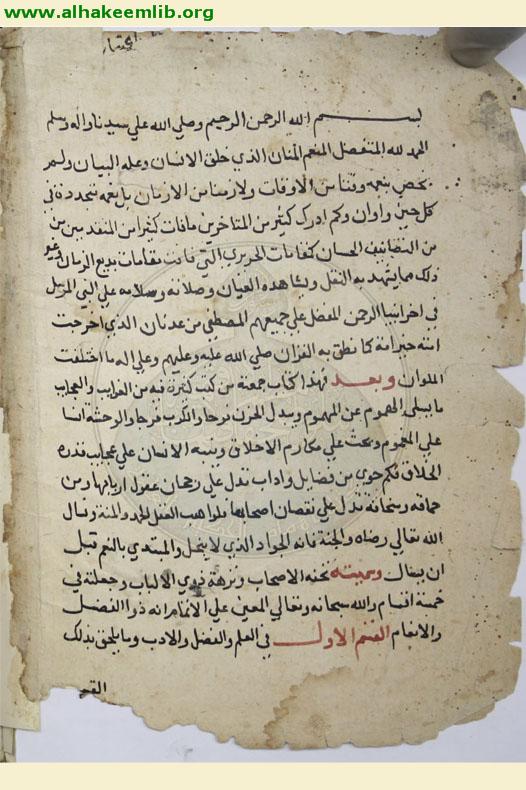 www.alhakeemlib.org
بسم الله الرحمن الرحيم وصلي الله علي سيدنا واله وسلم
الحمد لله المتفضل المنعم المنان الذي خلق الانسان وعلمه البيان ولم
يخص بنعمه وقتا من الاوقات ولا زمنا من الازمان بل نعمه متجددة في
كل حين واوان وكم ادرك كثير من المتاخرين ما فات كثيرا من المتقدمين من
من التصانيف الحسان كمقامات الحريري التي فاقت مقامات بديع الزمان وغير
ذلك مما يشهد به النقل ويشاهده العيان وصلاته وسلامه علي النبي المرسل
في اخر انبيا الرحمن المفضل علي جميعهم المصطفي من عدنان الذي اخرجت
امته خير امة كما نطق به القران صلي الله عليه وعليهم وعلي اله ما اختلفت
الملوان وبعد فهذا كتاب جمعته من كتب كثيرة فيه من الغرايب والعجايب
ما يسلي المهموم عن الهموم ويبدل الحزن فرحا والكرب فرجا والوحشة انسا
علي العموم ويحث علي مكارم الاخلاق وينبه الانسان علي عجايب قدرة
الخلاق فكم حوي من فضايل واداب تدل علي رجحان عقول اربابها ومن
حماقه وسخافة تدل علي نقصان اصحابها فلواهب العقل الحمد والمنة ونسال
الله تعالي رضاه والجنة فانه الجواد الذي لا يبخل والمبتدي بالنعم قبل
ان يسال وسميته تحفة الاصحاب ونزهة ذوي الالباب وجعلته في
خمسة اقسام والله سبحانه وتعالي المعين علي الاتمام انه ذو الفضل
والانعام القسم الاول في العلم والفضل والادب وما يلحق بذلك